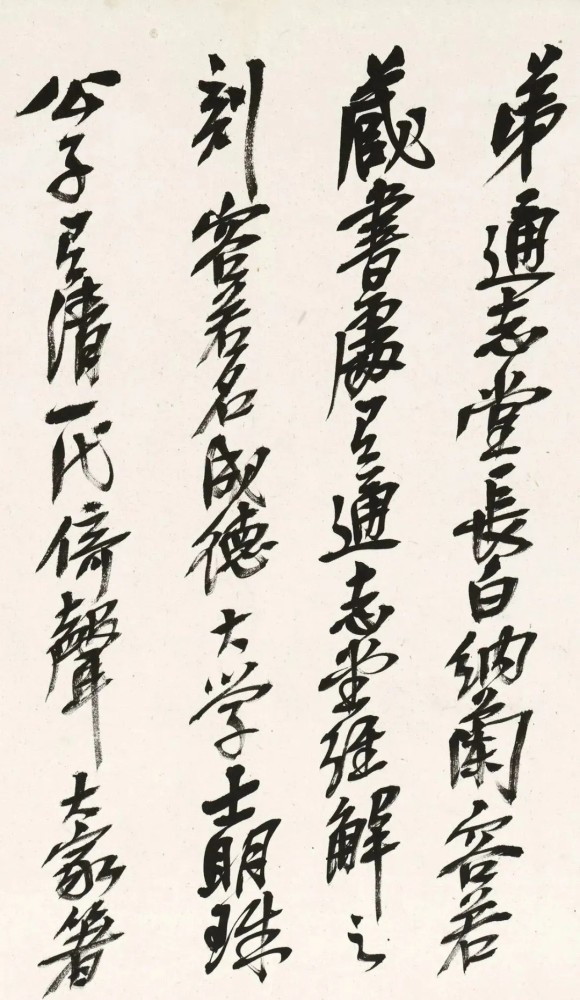 弟通志堂長白納蘭容若
藏書處有通志堂經解之
刻容若名成德大学士明珠
公子有清一代倚聲大家箸